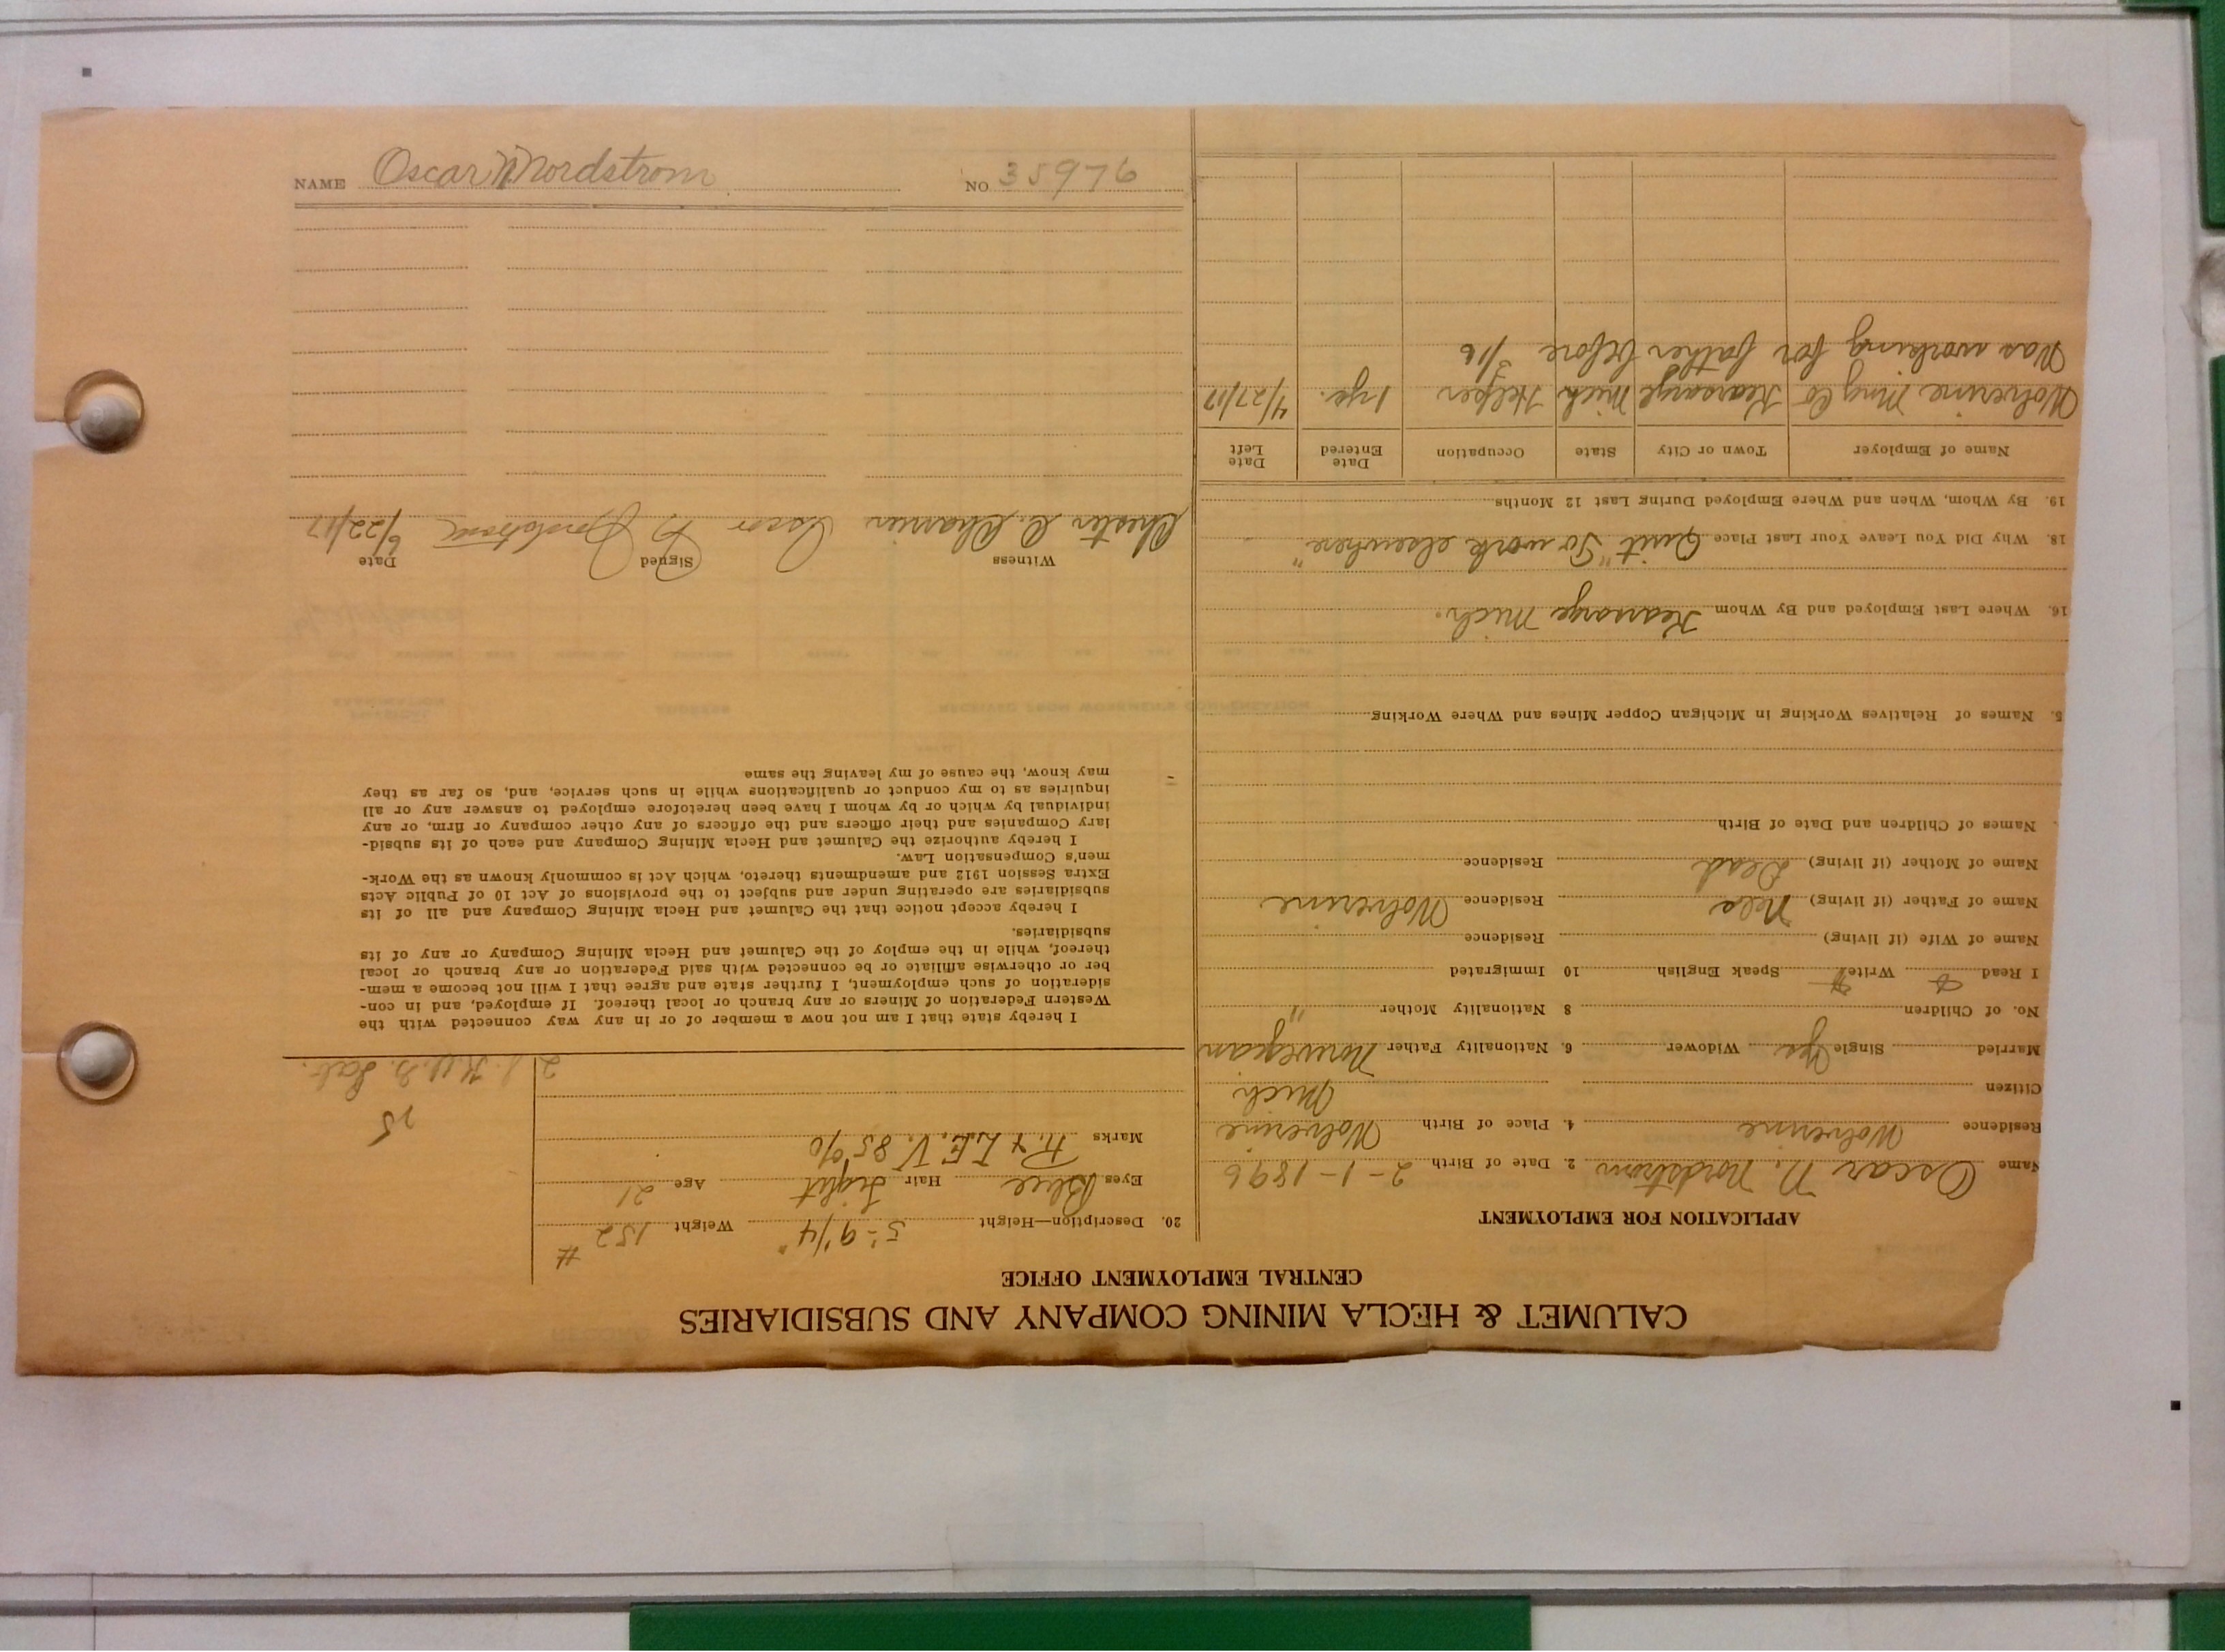 CALUMET & HECLA MINING COMPANY AND SUBSIDIARIES
CENTRAL EMPLOYMENT OFFICE
APPLICATION FOR EMPLOYMENT
Name Oscar N. Nordstrom 2. Date of Birth 2-1-1896
Residence Wolverine 4. Place of Birth Wolverine
Citizen Mich
Married Single Yes Widower 6. Nationality Father Norwegian
No. of Children 8 Nationality Mother "
I Read Write Speak English 10 Immigrated
Name of Wife (if living) Residence
Name of Father (if living) Nels Residence Wolverine
Name of Mother (if living) Dead Residence
Names of Children and Date of Birth
5. Names of Relatives Working in Michigan Copper Mines and Where Working
16. Where Last Employed and By Whom Kearsarge Mich.
18. Why Did You Leave Your Last Place Quit "To work elsewhere"
19. By Whom, When and Where Employed During Last 12 Months
Name of Employer Town or City State Occupation Date Entered Date Left
Wolverine Ming Co Kearsarge Mich Helper 1 yr. 4/27/17
Was working for father before 3/16
20. Description—Height 5'-9 1/4" Weight 152 #
Eyes Blue Hair Light Age 21
Marks R. & L. E. V. 85%
25
I hereby state that I am not now a member of or in any way connected with the
Western Federation of Miners or any branch or local thereof. If employed, and in con-
sideration of such employment, I further state and agree that I will not become a mem-
ber or otherwise affiliate or be connected with said Federation or any branch or local
thereof, while in the employ of the Calumet and Hecla Mining Company or any of its
subsidiaries.
I hereby accept notice that the Calumet and Hecla Mining Company and all of its
subsidiaries are operating under and subject to the provisions of Act 10 of Public Acts
Extra Session 1912 and amendments thereto, which Act is commonly known as the Work-
men's Compensation Law.
I hereby authorize the Calumet and Hecla Mining Company and each of its subsid-
iary Companies and their officers and the officers of any other company or firm, or any
individual by which or by whom I have been heretofore employed to answer any or all
inquiries as to my conduct or qualifications while in such service, and, so far as they
may know, the cause of my leaving the same
Witness Signed Date
Chester C. Oscar N Nordstrom 6/22/17
NAME Oscar N Nordstrom NO 35976